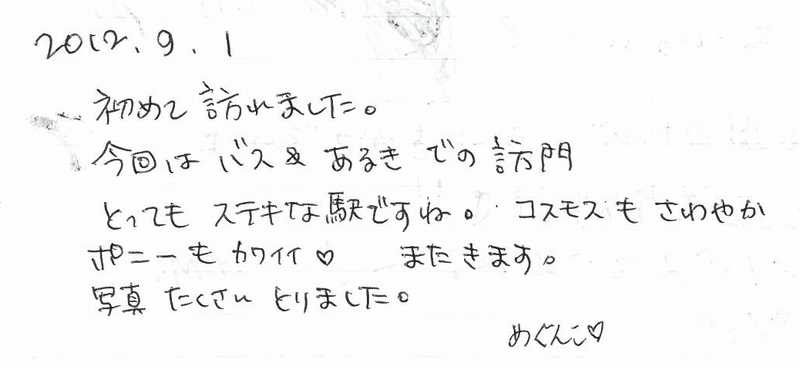 2012.9.1
初めて訪れました。
今回は バス & あるき での 訪門
とっても ステキな駅ですね。 コスモスも さわやか
ポニーも カワイイ♡ またきます。
写真 たくさん とりました。
めぐんこ♡